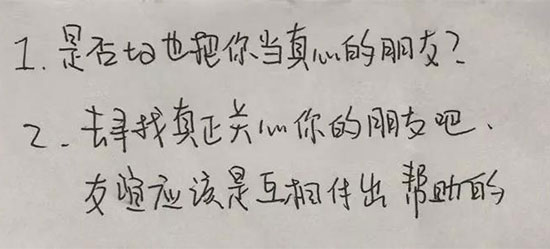 1. 是否她也把你当真心的朋友？
2. 去寻找真正关心你的朋友吧、
友谊应该是互相付出 帮助的